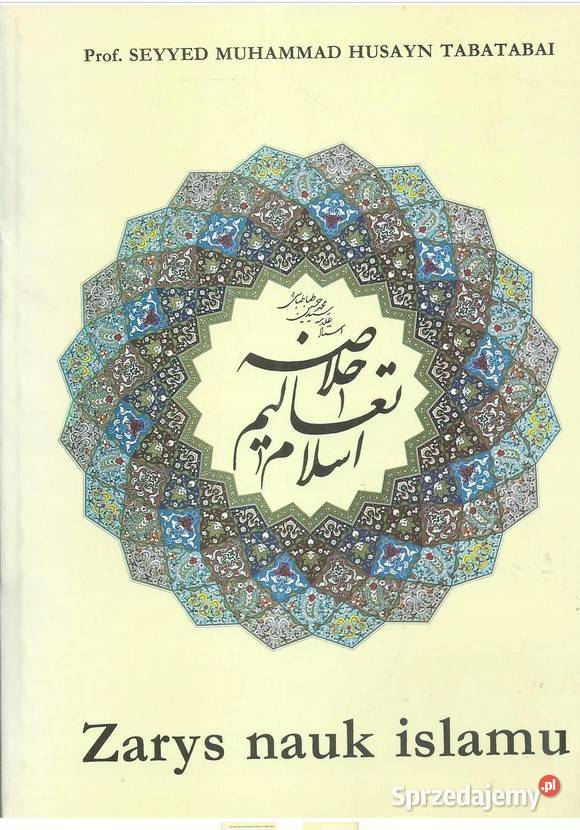 Prof. SEYYED MUHAMMAD HUSAYN TABATABAI
استاد علامه
محمد حسین طباطبائی
خلاصه
تعالیم
اسلام
Zarys nauk islamu
Sprzedajemy.pl